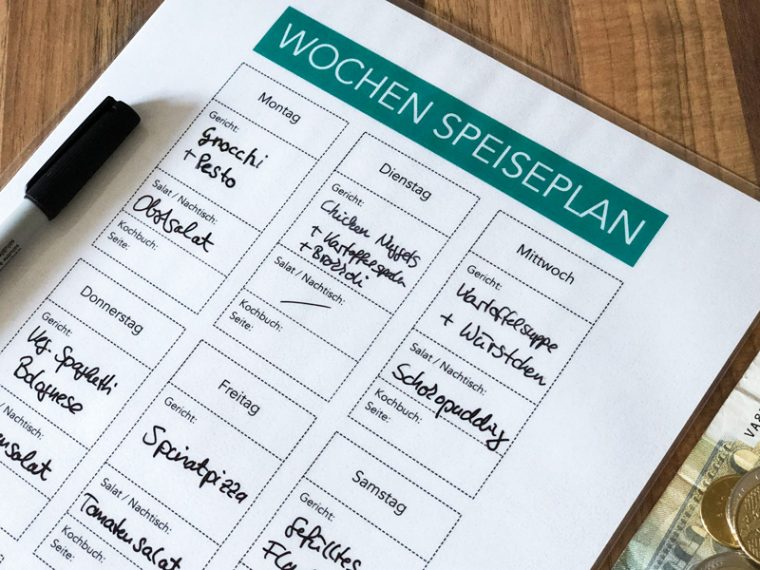 WOCHEN SPEISEPLAN
Montag
Gericht:
Gnocchi
+ Pesto
Salat / Nachtisch:
Obstsalat
Kochbuch:
Seite:
Dienstag
Gericht:
Chicken Nuggets
+ Kartoffelspalten
+ Broccoli
Salat / Nachtisch:
Kochbuch:
Seite:
Mittwoch
Gericht:
Kartoffelsuppe
+ Würstchen
Salat / Nachtisch:
Schokopudding
Kochbuch:
Seite:
Donnerstag
Gericht:
Veg. Spaghetti
Bolognese
/ Nachtisch:
Freitag
Gericht:
Spinatpizza
Salat / Nachtisch:
Tomatensalat
Kochbuch:
Seite:
Samstag
Gericht:
Gefülltes